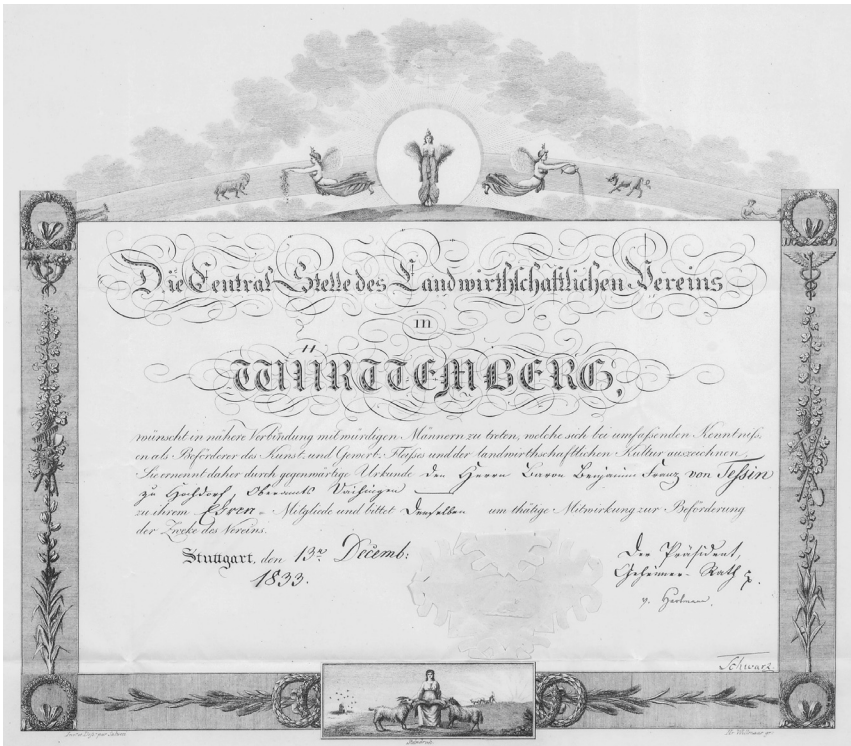 Die Central-Stelle des Landwirthschaftlichen Vereins
in
WÜRTTEMBERG,
wünscht in nähere Verbindung mit würdigen Männern zu treten, welche sich bei umfassenden Kenntniß,
en als Beförderer des Kunst, und Gewerb-Fleißes und der landwirthschaftlichen Kultur auszeichnen.
Sie ernennt daher durch gegenwärtige Urkunde den Herrn Baron Benjamin Franz von Tessin
zu Hochdorf Oberamts Vaihingen
zu ihrem Ehren-Mitgliede und bittet Denselben um thätige Mitwirkung zur Beförderung
der Zweke des Vereins.
Stuttgart, den 13n Decemb:
1833.
Der Präsident,
Geheimer-Rath
v. Hartmann.
Schwarz